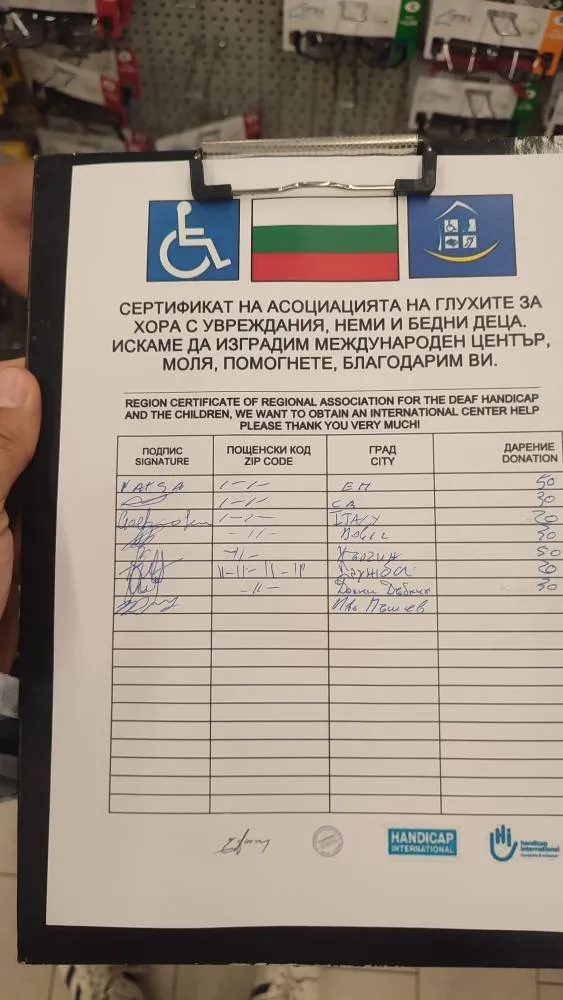 СЕРТИФИКАТ НА АСОЦИАЦИЯТА НА ГЛУХИТЕ ЗА
ХОРА С УВРЕЖДАНИЯ, НЕМИ И БЕДНИ ДЕЦА.
ИСКАМЕ ДА ИЗГРАДИМ МЕЖДУНАРОДЕН ЦЕНТЪР,
МОЛЯ, ПОМОГНЕТЕ, БЛАГОДАРИМ ВИ.
REGION CERTIFICATE OF REGIONAL ASSOCIATION FOR THE DEAF HANDICAP
AND THE CHILDREN, WE WANT TO OBTAIN AN INTERNATIONAL CENTER HELP
PLEASE THANK YOU VERY MUCH!
ПОДПИС ПОЩЕНСКИ КОД ГРАД ДАРЕНИЕ
SIGNATURE ZIP CODE CITY DONATION
50
30
ITALY 20
30
50
Дружба 20
30
HANDICAP
INTERNATIONAL
handicap
international